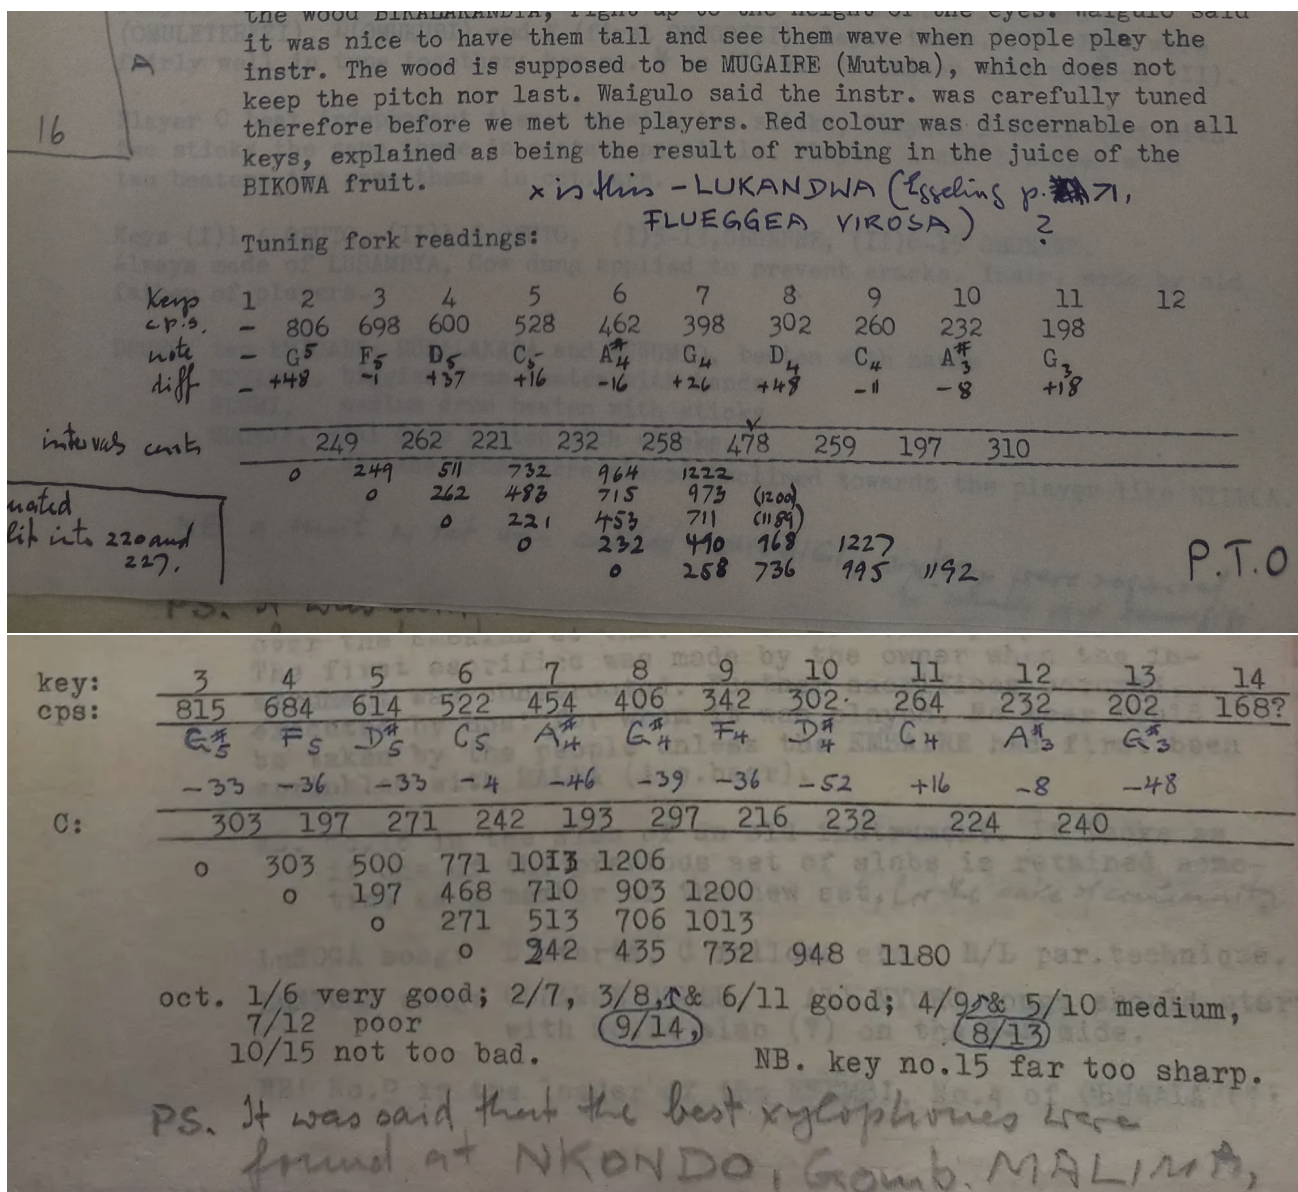 the wood BIKALAKANDIA, right up to the height of the eyes. Waigulo said
it was nice to have them tall and see them wave when people play the
A
instr. The wood is supposed to be MUGAIRE (Mutuba), which does not
keep the pitch nor last. Waigulo said the instr. was carefully tuned
16
therefore before we met the players. Red colour was discernable on all
keys, explained as being the result of rubbing in the juice of the
BIKOWA fruit. x is this - LUKANDWA (Eggeling p. 71,
FLUEGGEA VIROSA) ?
Tuning fork readings:
Keys 1 2 3 4 5 6 7 8 9 10 11 12
c.p.s. - 806 698 600 528 462 398 302 260 232 198
note - G5 F5 D5 C5 A#4 G4 D4 C4 A#3 G3
diff - +48 -1 +37 +16 -16 +26 +48 -11 -8 +18
intervals cents 249 262 221 232 258 478 259 197 310
0 249 511 732 964 1222
0 262 483 715 973 (1200)
0 221 453 711 (1189)
0 232 490 968 1227
0 258 736 995 1192
nated
lit into 220 and
227.
P.T.O
key: 3 4 5 6 7 8 9 10 11 12 13 14
cps: 815 684 614 522 454 406 342 302. 264 232 202 168?
G#5 F5 D#5 C5 A#4 G#4 F4 D#4 C4 A#3 G#3
-33 -36 -33 -4 -46 -39 -36 -52 +16 -8 -48
C: 303 197 271 242 193 297 216 232 224 240
0 303 500 771 1013 1206
0 197 468 710 903 1200
0 271 513 706 1013
0 242 435 732 948 1180
oct. 1/6 very good; 2/7, 3/8,↑& 6/11 good; 4/9↗& 5/10 medium,
7/12 poor (9/14,) (8/13)
10/15 not too bad. NB. key no.15 far too sharp.
PS. It was said that the best xylophones were
found at NKONDO, Gomb. MALIMA,